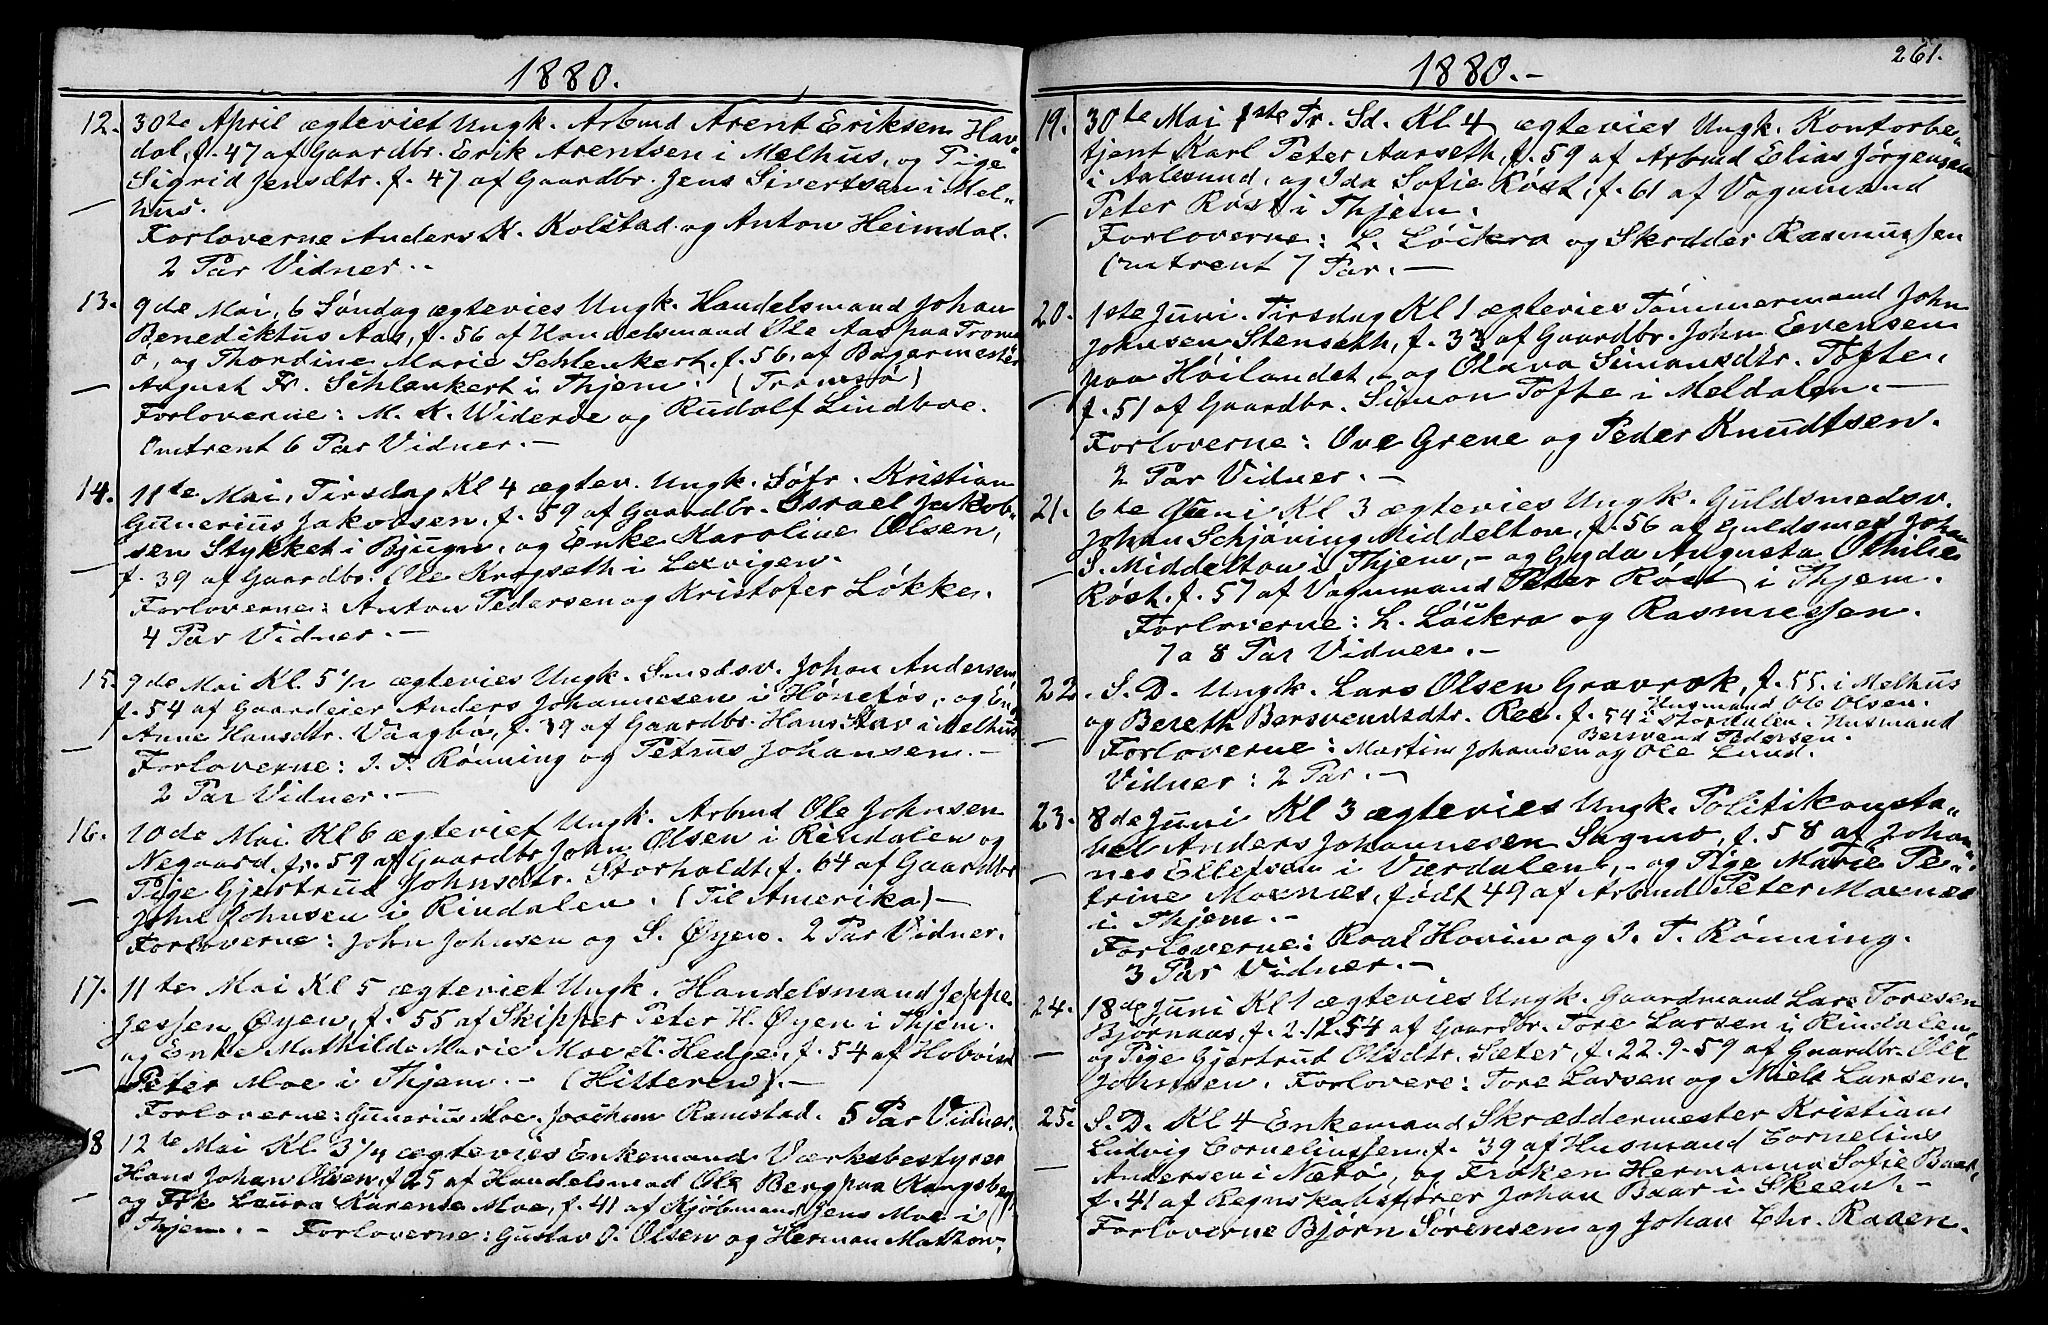 1880.
12. 30te April ægteviet Ungk. Arbmd Arent Eriksen Hav-
dal, f. 47 af Gaardbr. Erik Arentsen i Melhus, og Pige
Sigrid Jensdtr. f. 47 af Gaardbr. Jens Sivertsen i Mel-
hus.
Forloverne Anders K. Kolstad og Anton Heimdal.
2 Par Vidner.-
13. 9de Mai, 6 Søndag ægtevies Ungk. Handelsmand Johan
Benediktus Aas, f. 56 af Handelsmand Ole Aas paa Troms
ø, og Thordine Marie Schlenkert, f. 56, af Bagermester
August Fr. Schlenkert i Thjem. (Tromsø)
Forloverne: M. K. Widerøe og Rudolf Lindboe.
Omtrent 6 Par Vidner.-
14. 11te Mai, Tirsdag Kl 4 ægtev. Ungk. Søfr. Kristian
Gunerius Jakobsen, f. 59 af Gaardbr. Israel Jakob-
sen Stykket i Bjugn, og Enke Karoline Olsen,
f. 39 af Gaardbr. Ole Kragseth i Lexvigen.
Forloverne: Anton Pedersen og Kristofer Løkke.
4 Par Vidner.-
15. 9de Mai Kl. 5 1/2 ægtevies Ungk. Smedsv. Johan Andersen,
f. 54 af Gaardeier Anders Johannesen i Hønefos, og
Anne Hansdtr. Vaagbø, f. 39 af Gaardbr. Hans Slav i Melhus
Forloverne: I. T. Rønning og Petrus Johansen.-
2 Par Vidner.-
16. 10de Mai Kl 6 ægteviet Ungk. Arbmd Ole Johnsen
Negaard, f. 59 af Gaardbr John Olsen i Rindalen og
Pige Gjertrud Johnsdtr. Storholdt, f. 64 af Gaardbr
John Johnsen i Rindalen. (Til Amerika)-
Forloverne: John Johnsen og S. Øyen. 2 Par Vidner.
17. 11te Mai Kl 5 ægteviet Ungk. Handelsmand Jeppe
Jessen Øyen, f. 55 af Skipper Peter H. Øyen i Thjem.
og Enke Mathilde Marie Moe f. Hedge, f. 54 af
Peter Moe i Thjem.- (Hitteren).-
Forloverne: Gunerius Moe. Joachum Ramstad. 5 Par Vidner.
18 12te Mai Kl 3 1/4 ægtevies Enkemand Værksbestyrer
Hans Johan Olsen, f. 25 af Handelsmad Ole Berg paa Kongsberg
og Frk Laura Karense Moe, f. 41 af Kjøbmand Jens Moe i
Thjem.- Forloverne: Gustav O. Olsen og Herman Mathow.
261.
1880.-
19. 30te Mai 1ste Tr. Sd. Kl 4 ægtevies Ungk. Kontorbe-
tjent Karl Peter Aarseth, f. 59 af Arbmd Elias Jørgensen
i Aalesund, og Ida Sofie Røst, f. 61 af Vognmand
Peter Røst i Thjem.
Forloverne: L. Löckra og Skrdder Rasmussen
Omtrent 7 Par.-
20. 1ste Juni. Tirsdag Kl 1 ægtevies Tømmermand John
Johnsen Stenseth, f. 33 af Gaardbr. John Evensen
paa Høilandet, og Olava Simonsdtr. Tofte,
f. 51 af Gaardbr. Simon Tofte i Meldalen.-
Forloverne: Ove Grene og Peder Knudtsen.
2 Par Vidner.-
21. 6te Juni Kl 3 ægtevies Ungk. Guldsmedsv.
Johan Schjøning Middelton, f. 56 af Guldsmed Johan
S. Middelton i Thjem,- og Gyda Augusta Othilie
Røst. f. 57 af Vognmand Peter Røst i Thjem.
Forloverne: L. Löckra og Rasmussen.
7 a 8 Par Vidner.-
22. S. D. Ungk. Lars Olsen Gravrok, f. 55. i Melhus
Husmand Ole Olsen.
og Bereth Bersvendsdtr. Ree. f. 54 i Stordalen. Husmand
Bersvend Pedersen.
Forloverne: Martin Johansen og Ole Lund.
Vidner: 2 Par.-
23. 8de Juni Kl 3 ægtevies Ungk. Politikonsta-
bel Anders Johannesen Sagmo, f. 58 af Johan-
nes Ellefsen i Værdalen,- og Pige Marie Pe-
trine Moxnes, født 49 af Arbmd Peter Moxnes
i Thjem.-
Forloverne: Roal Hovin og I. T. Rønning.
3 Par Vidner.-
24. 18de Juni Kl 1 ægtevies Ungk. Gaardmand Lars Toresen
Bjørnaas, f. 2-12.54 af Gaardbr. Tore Larsen i Rindalen,
og Pige Gjertrut Olsdtr. Sæter, f. 22.9-59 af Gaardbr. Ole
Johnsen. Forlovere: Tore Larsen og Niels Larsen.
25. S. D. Kl 4 Enkemand Skræddermester Kristian
Ludvig Corneliussen, f. 39 af Husmand Cornelius
Andersen i Nætø, og Frøken Hermanna Sofie Baar,
f. 41 af Regnskabsfører Johan Baar i Skeen.-
Forloverne Bjørn Sørensen og Johan Chr. Raaen.